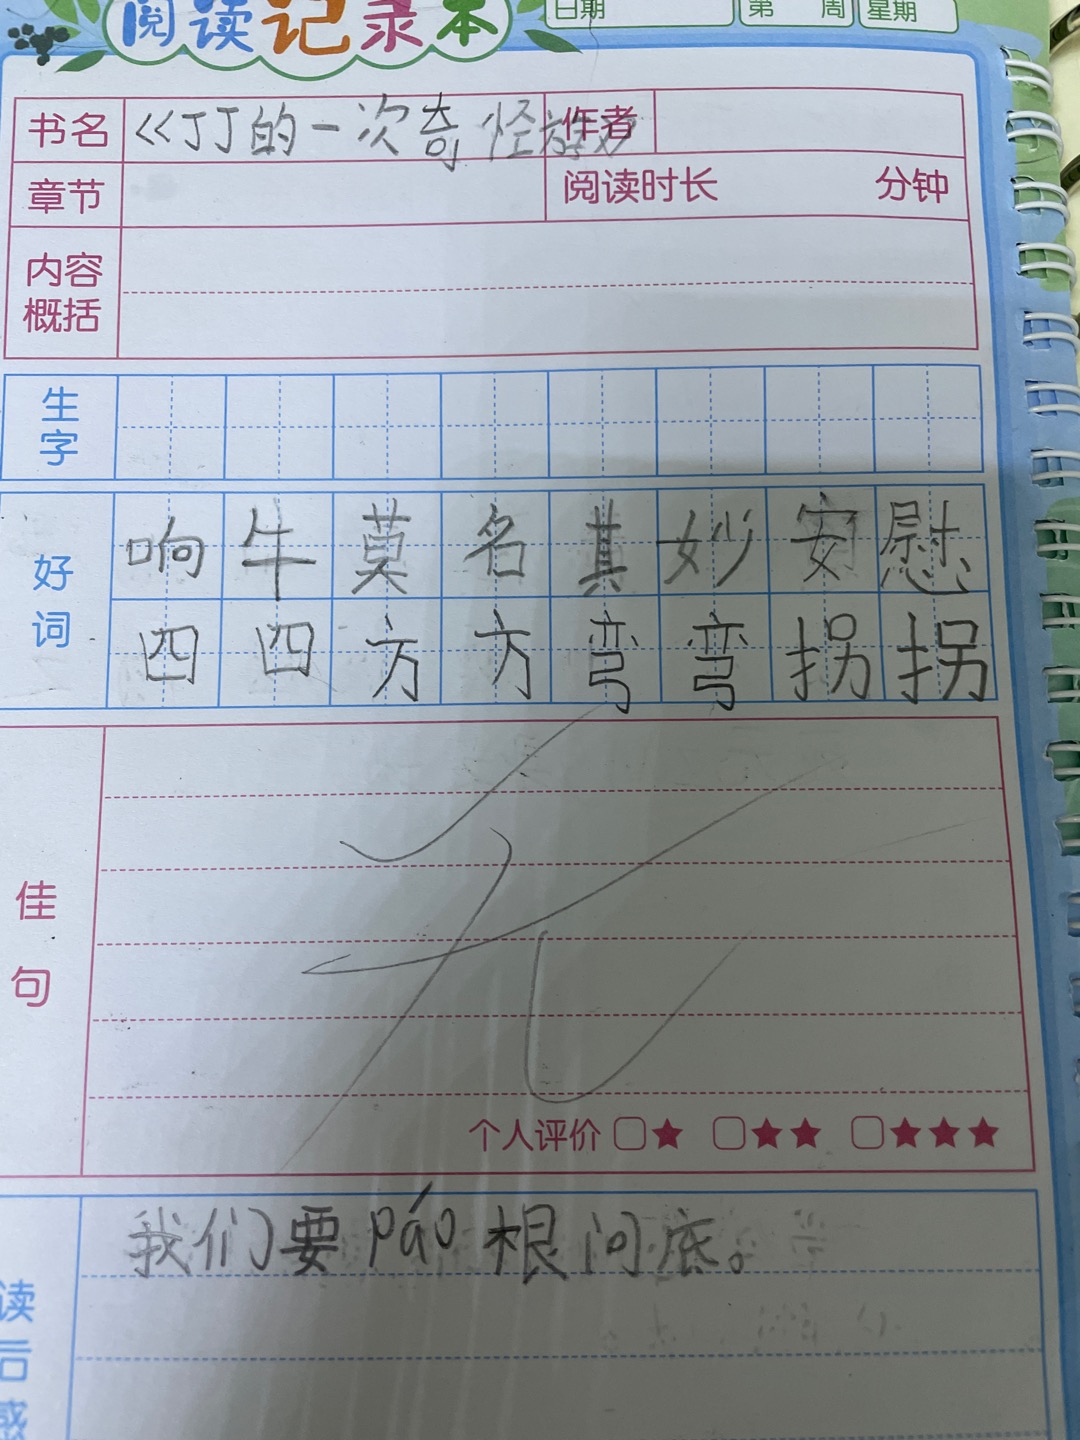 阅读记录本 日期 第 周 星期
书名 《丁丁的一次奇怪旅行》 作者
章节 阅读时长 分钟
内容
概括
生
字
好
词
响牛莫名其妙安慰
四四方方弯弯拐拐
佳
句
无
个人评价 □★ □★★ □★★★
读
后
感
我们要páo根问底。